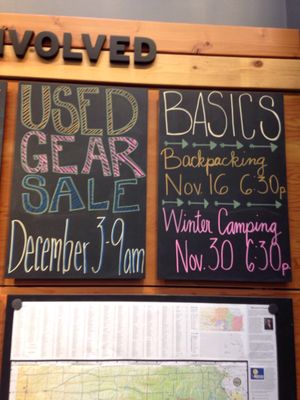 NVOLVED
USED
GEAR
SALE
December 3 - 9am
BASICS
Backpacking
Nov. 16 6:30p
Winter Camping
Nov. 30 6:30p